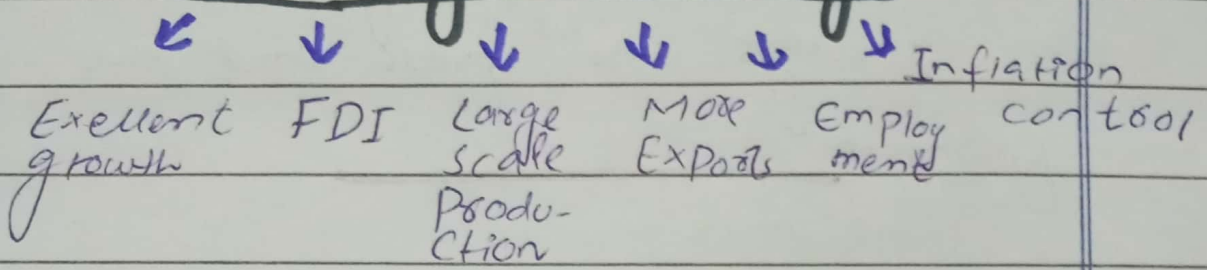 Exellent growth
FDI
Large scale Produ-ction
More Exports
Employ ment
Inflation control